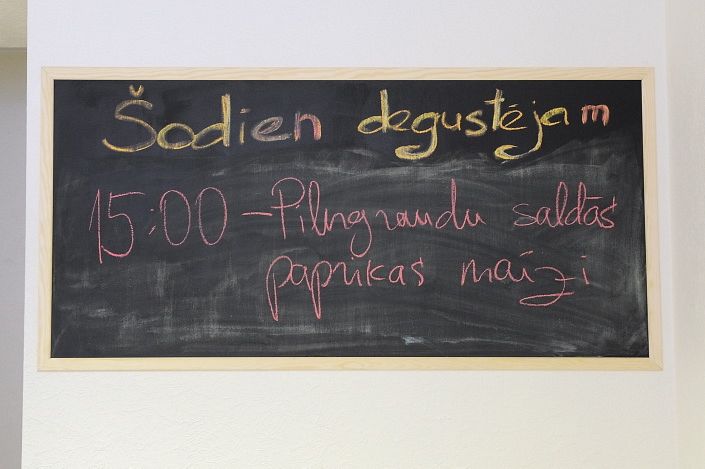 Šodien degustējam
15:00 - Pilngraudu saldās
paprikas maizi